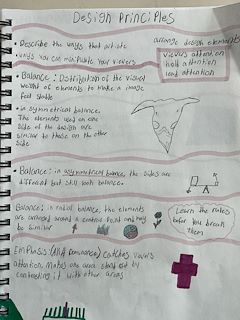 Design Principles
• Describe the ways that artists arrange design elements
• ways you can manipulate your viewers
viewers attention
hold attention
lead attention
• Balance: Distribution of the visual
weight of elements to make a image
feel stable
• in symmetrical balance,
The elements used on one
side of the design are
similar to those on the other
side
• Balance: in asymmetrical balance, the sides are
different but still look balance.
Balance: in radial balance, the elements
are arranged around a central point and may
be similar
Learn the rules
before you break
them
Emphasis (AKA Dominance) catches viewers
attention. Makes one area stand out by
contrasting it with other areas